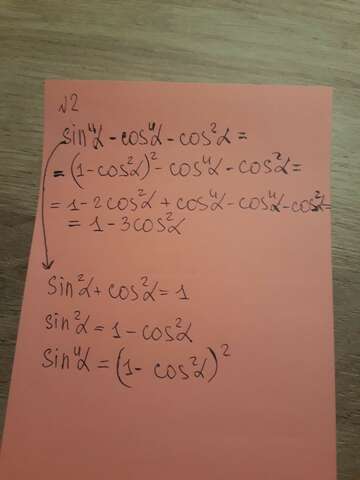 √2
sin⁴α - cos⁴α - cos²α =
= (1-cos²α)² - cos⁴α - cos²α =
= 1-2cos²α + cos⁴α - cos⁴α - cos²α =
= 1-3cos²α
sin²α + cos²α = 1
sin²α = 1 - cos²α
sin⁴α = (1- cos²α)²